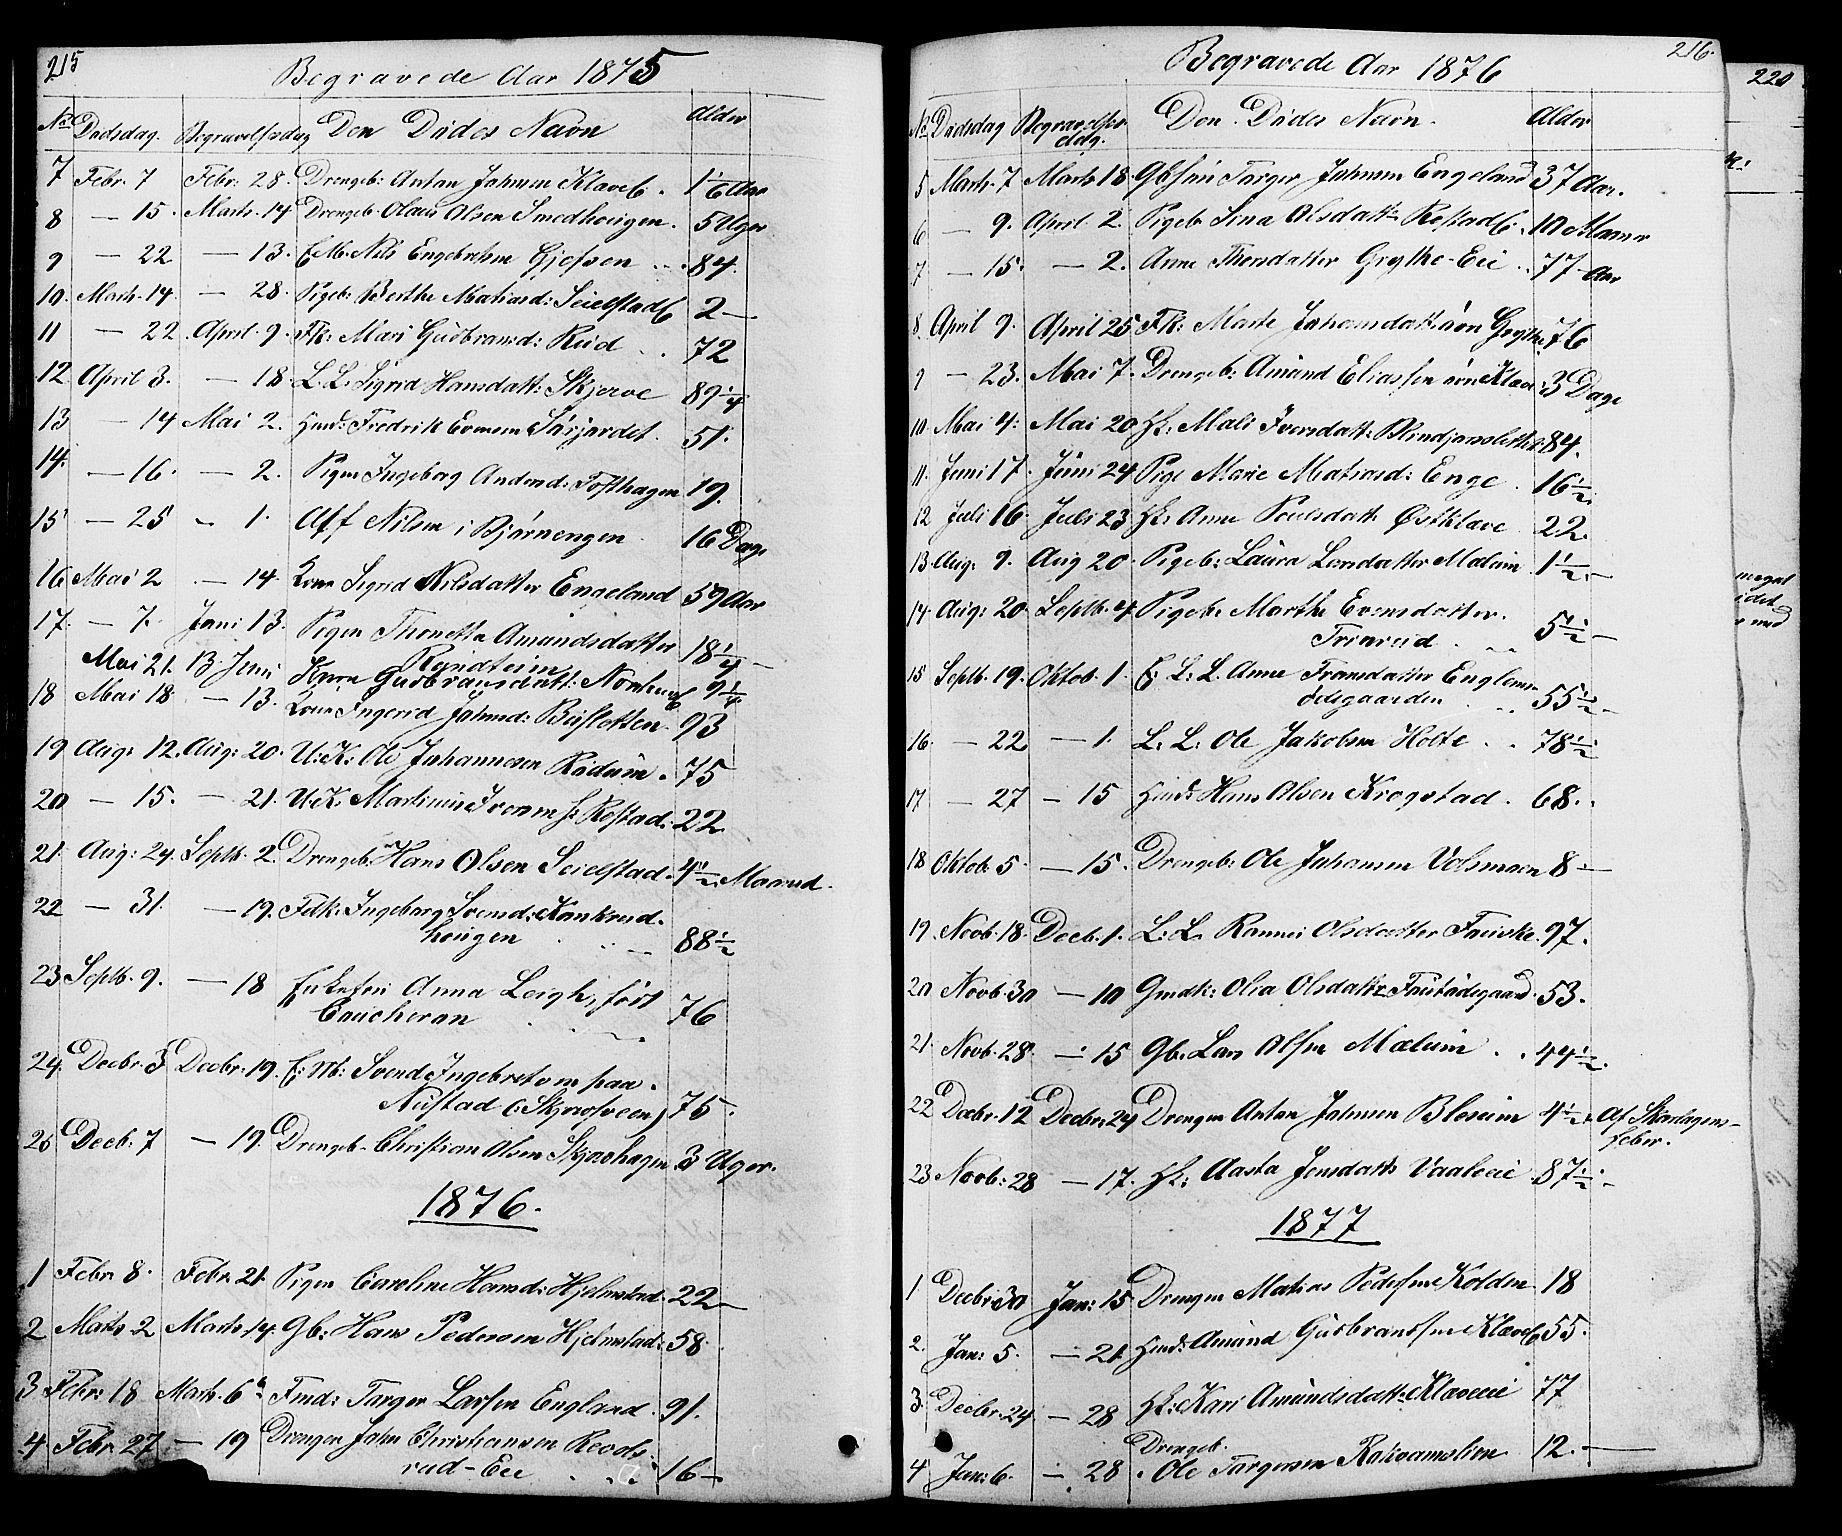 215
Begravede Aar 1875
No. Dödsdag. Begravelsesdag Den Dödes Navn Alder
7 Febr. 7 Febr: 28. Drengeb: Anton Johnsen Klaveb. 1/6 Aar
8 — 15. Marts. 14 Drengeb. Olaus Olsen Smedhougen. 5 Uger
9 — 22 — 13. E.M. Nils Engebretsen Gjefsen . . 84.
10. Marts. 14. — 28. Pigeb: Berthe Mathiasd: Seielstad 2 —
11 — 22 April. 9. Fk: Mari Gudbrandd: Rud . . 72
12 April 3. — 18 L. L. Sigrid Hansdatt: Skjerve 89 1/4
13 — 14 Mai 2. Huusd: Fredrik Evensen Sörjordet. 51.
14. — 16. — 2. Pigen Ingeborg Andersd: Tofthagen 19.
15 — 25 — 1. Alf Nilsen i Bjørnengen 16 Dage
16 Mai 2 — 14. Kone Sigrid Nilsdatter Engeland 59 Aar
17. — 7. Juni 13. Pigen Thonetta Amundsdatter
Rundtom 18 1/4 —
Mai 21. 13 Juni Karen Gudbrandsdatt: 9 1/4
18 Mai 18 — 13. Kone Ingerid Johnsd: Busletten. 93
19 Aug: 12. Aug: 20. U.K: Ole Johannesen Rudum. 75
20 — 15. — 21. U.K. Martinus Iversen Rostad. 22.
21. Aug: 24. Septb. 2. Drengeb. Hans Olsen Seielstad. 4 1/2 Maaned.
22 — 31. — 19. Fdk: Ingeborg Svensd: Kankrud-
hougen 88 1/2
23 Septb. 9. — 18 Enkefru Anna Leigh, født
Caucheran 76
24. Decbr. 3 Decbr. 19. E: M: Svend Ingebretsen paa
Nustad (: Skjørsveen) 75.
25 Decb. 7 — 19. Drengeb. Christian Olsen Skjøshagen 3 Uger.
1876.
1 Febr. 8. Febr. 21. Pigen Caroline Hansd: Hjelmstad. 22 —
2 Marts. 2 Marts. 14. Gb: Hans Pedersen Hjelmstad: 58.
3 Febr: 18 Marts. 6 Fmd: Torger Larsen England. 91.
4. Febr. 27 — 19 Drengen John Christiansen Revols-
rud-Eie . . . 16 —
216.
Begravede Aar 1876
No. Dödsdag Begravelses-
dag. Den Dödes Navn. Alder
5 Marts. 7 Marts 18. Torger Johnsen Engeland 37 Aar.
6 — 9. April 2. Pigeb. Sina Olsdatt: Rostad 10 Maaner
7 — 15. — 2. Anne Thorsdatter Grythe-Eie . . 77 Aar
8. April 9. April 25 Fk: Marte Johansdatt övn Grythe 76
9 — 23. Mai 7. Drengeb: Amund Eliassen övn Klæve. 3 Dage
10. Mai 4. Mai 20 Hk: Mali Iversdatt: 84.
11. Juni 17. Juni 24 Pige Marie Mathiasd: Enge. 16 1/2.
12 Juli 16. Juli 23 Hk: Anne Poulsdatt. Østklæve 22.
13. Aug: 9. Aug 20. Pigeb: Laura Larsdatter Mælum. 1 1/2 —
14. Aug: 20. Septb. 4 Pigeb: Marthe Evensdatter
Trönrud . . 5 1/2 —
15 Septb. 19. Oktob. 1. E: L: L. Anne Fransdatter
ödegaarden . . 55 1/2 —
16. — 22 — 1. L: L: Ole Jakobsen Holte . . 78 1/2
17 — 27 — 15 Huusd: Hans Olsen Krogstad. 68.
18 Oktob. 5 — 15. Drengeb: Ole Johansen Volsmoen 8 —
19. Novb. 18. Decb. 1. L: L. Rannei Olsdatter Fauske. 97.
20 Novb. 30 — 10 Gmdk: Olia Olsdatter 53.
21. Novb. 28. — 15 Gb. Lars Olsen Mælum . . 44 1/2.
22 Decbr. 12 Decbr. 24 Drengen Anton Johnsen Blesum 4 1/2 Af Skarlagens-
feber.
23 Novb: 28 — 17. Hk: Aasta Jensdatt: Vaaleeie 87 1/2 —
1877
1 Decbr. 30 Jan: 15 Drengen Matias Pedersen Kolden 18
2. Jan: 5. — 21. Huusd: Amund Gudbrandsen Klæve 55.
3. Decbr. 24 — 28 Hk: Kari Amundsdatt: Klæveeie 77
4 Jan: 6. — 28 Drengeb.
Ole Torgersen Kolvamslien 12. —
220